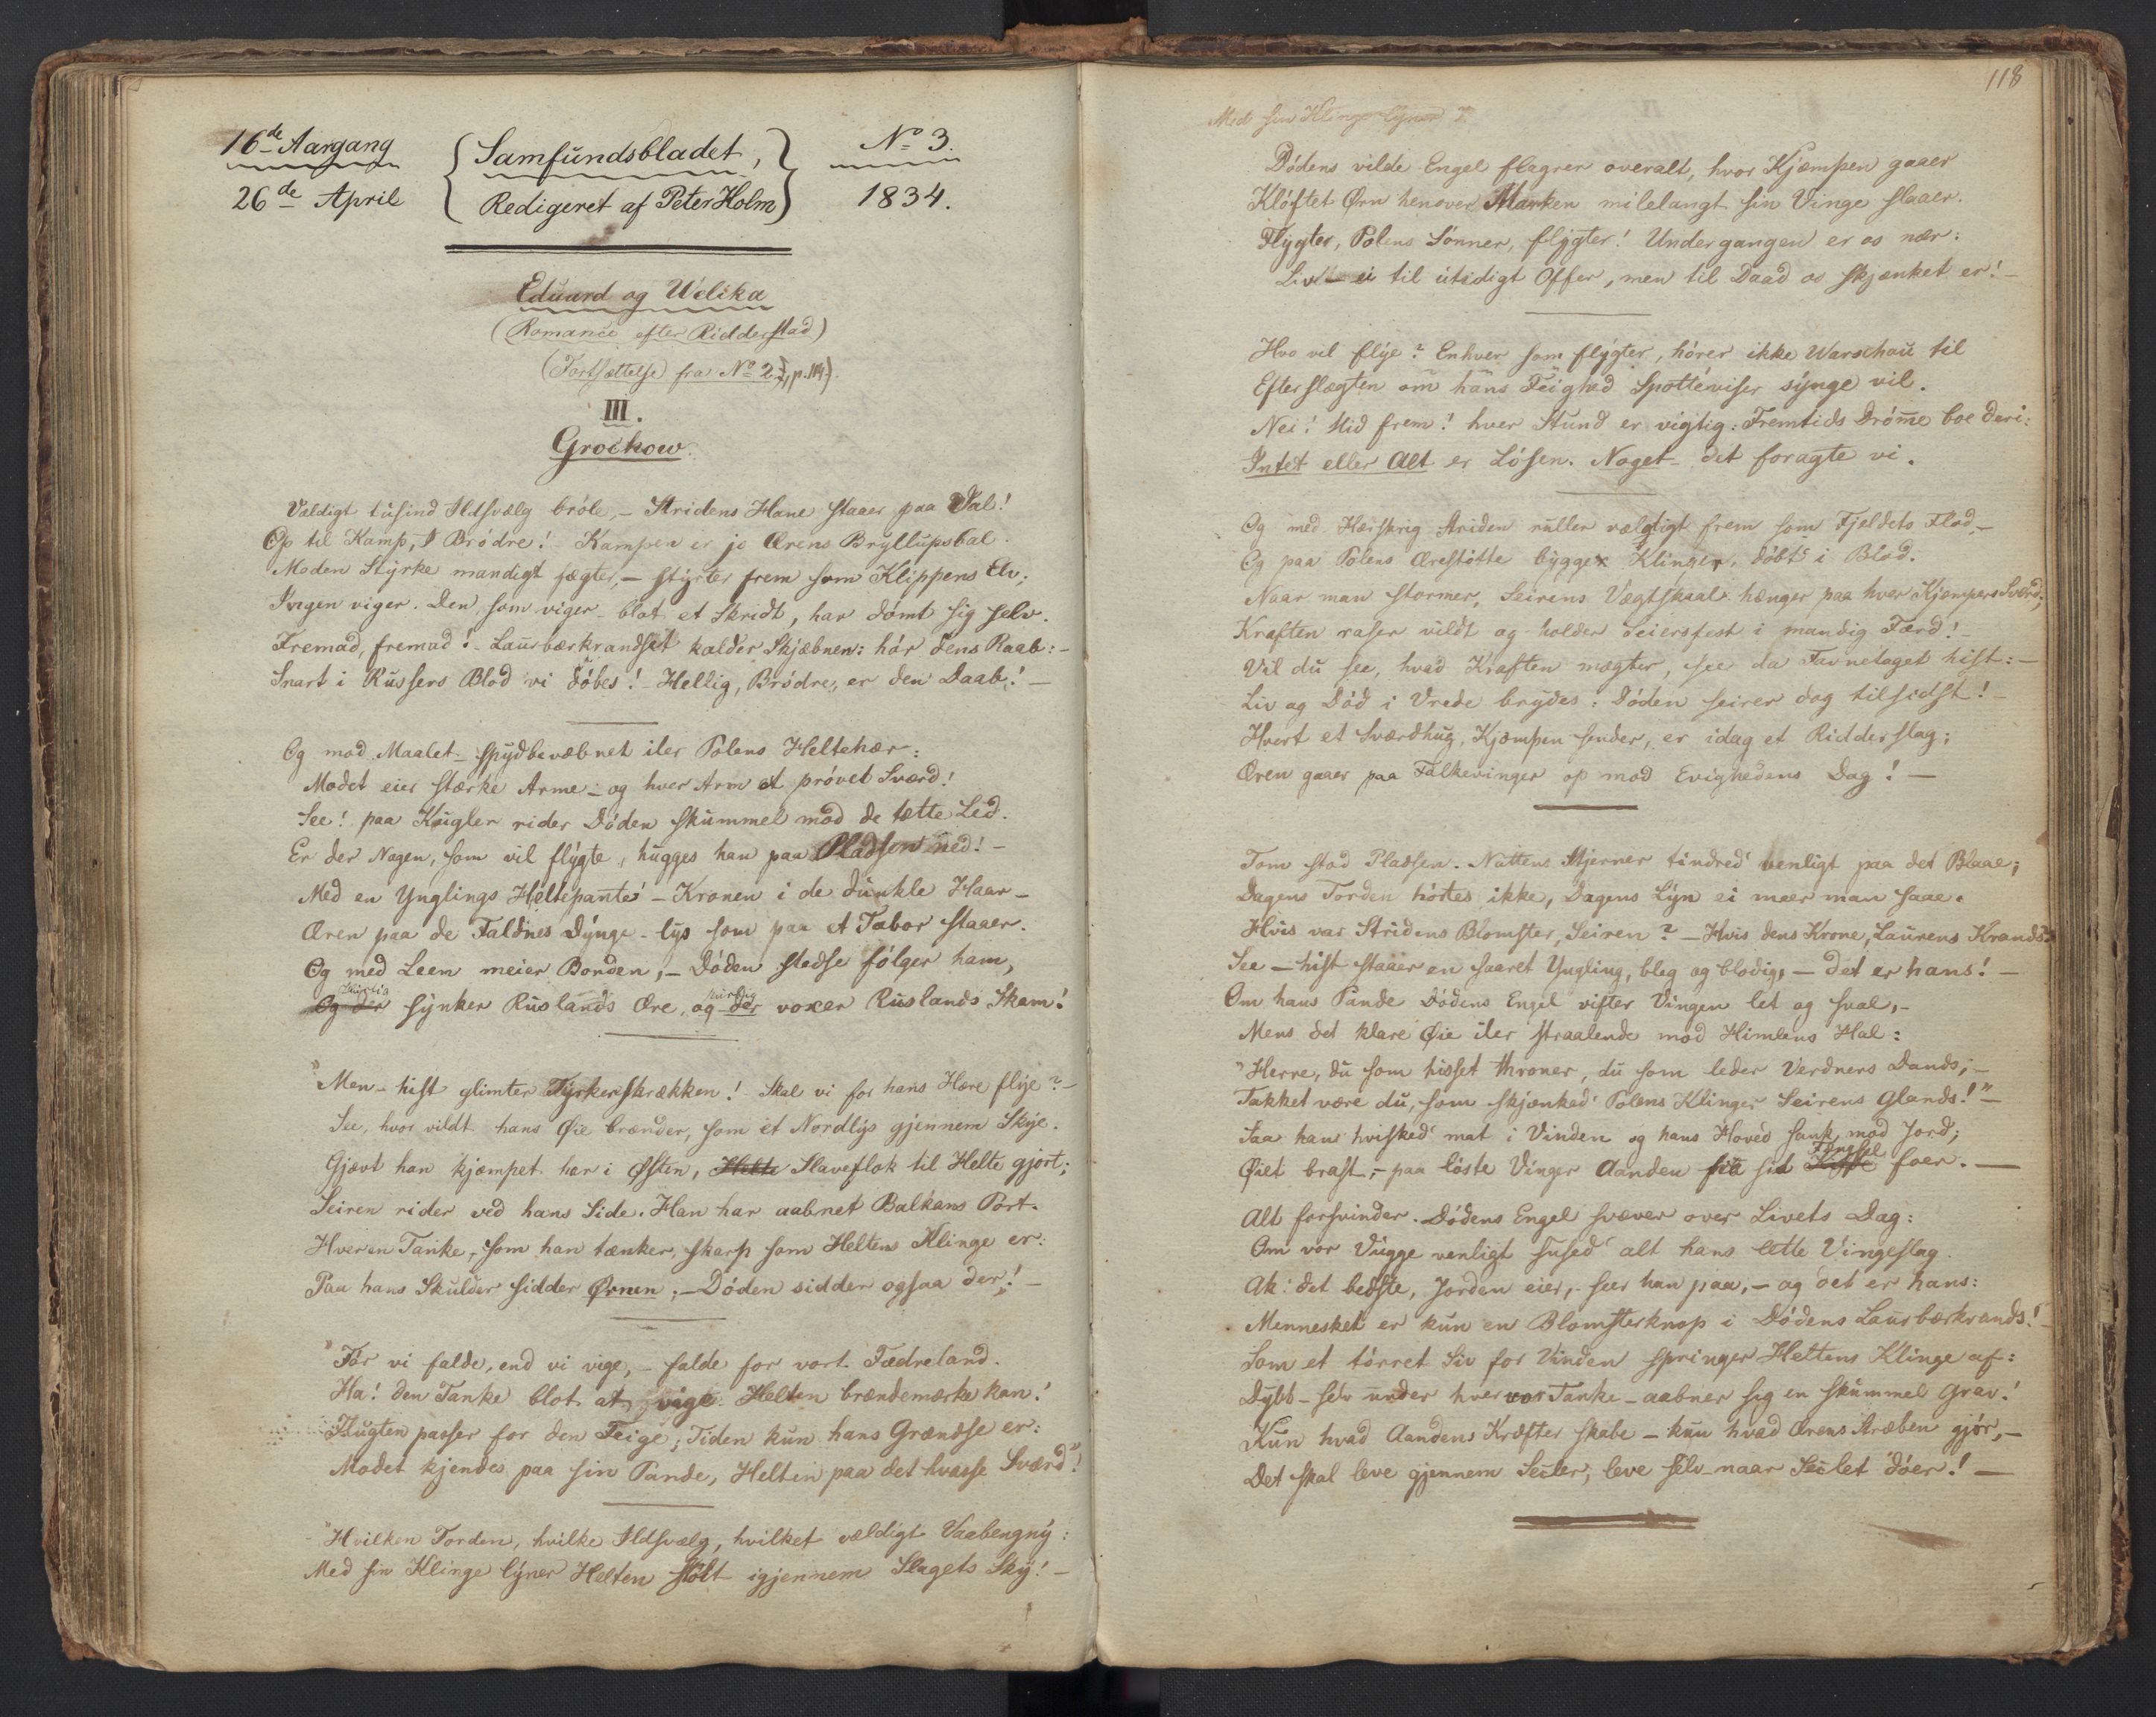 16de Aargang
26de April
Samfundsbladet,
Redigeret af Peter Holm
No 3.
1834.
Eduard og Welika
(Romance efter Ridderstad)
(Fortsættelse fra No 2, p. 114.)
III.
Grochow.
Vældigt tusind Ildsvælg brøle, – Stridens Hane staaer paa Val!
Op til Kamp, I Brødre! Kampen er jo Ærens Bryllupsbal.
Moden Styrke mandigt fægter, – styrter frem som Klippens Elv;
Ingen viger. Den, som viger – blot et Skridt, har dømt sig selv.
Fremad, fremad! – Laurbærkrandset kalder Skjæbnen: hør dens Raab: –
Snart i Russers Blod vi døbes! – Hellig, Brødre, er den Daab! –
Og mod Maalet – spydbevæbnet iler Polens Heltehær:
Modet eier stærke Arme – og hver Arm et prøvet Sværd!
See! paa Kugler rider Døden skummel mod de tætte Led.
Er der Nogen, som vil flygte, hugges han paa Pladsen ned! –
Med en Ynglings Heltepande – Kronen i de dunkle Haar –
Æren paa de Faldnes Dynge – lys som paa et Tabor staaer.
Og med Leen meier Bonden, – Døden stedse følger ham,
Og der synker Ruslands Ære, og der voxer Ruslands Skam!
"Men – hist glimter Tyrkerskrækken! – Skal vi for hans Hære flye? –
See, hvor vildt hans Øie brænder, som et Nordlys gjennem Skye.
Gjævt han kjæmpet har i Østen, Helte Slaveflok til Helte gjort;
Seiren rider ved hans Side. Han har aabnet Balkans Port.
Hver en Tanke, som han tænker, skarp som Heltens Klinge er:
Paa hans Skulder sidder Ørnen; – Døden sidder ogsaa der!" –
"Før vi falde, end vi vige, – falde for vort Fædreland.
Ha! den Tanke blot at vige Helten brændemærke kan!
Flugten passer for den Feige; Tiden kun hans Grændse er:
Modet kjendes paa sin Pande, Helten paa det hvasse Sværd"!
"Hvilken Torden, hvilke Ildsvælg, hvilket vældigt Vaabengny:
Med sin Klinge lyner Helten stolt igjennem Slagets Sky! –
118
Med sin Klinge lyner
Dødens vilde Engel flagrer overalt, hvor Kjæmpen gaaer
Kløftet Ørn henover Marken milelangt sin Vinge slaaer.
Flygter, Polens Sønner, flygter! Undergangen er os nær:
Liv – ei til utidigt Offer, men til Daad os skjænket er! –
Hvo vil flye? Enhver som flygter, hører ikke Warschau til
Efterslægten om hans Feighed Spotteviser synge vil.
Nei! Mid frem! hver Stund er vigtig: Fremtids Drømme boe deri:
Intet eller Alt er Løsen. Noget – det foragte vi.
Og med Hærskrig Striden ruller vælgtigt frem som Fjeldets Flod, –
Og paa Polens Ærestøtte bygger Klinger, døbt i Blod.
Naar man stormer, Seirens Vægtskaal hænger paa hver Kjæmpers Sværd;
Kraften raser vildt og holder Seiersfest i mandig Færd! –
Vil du see, hvad Kraften mægter, see da Favnetaget hist: –
Liv og Død i Vrede brydes: Døden seirer dog tilsidst! –
Hvert et Sværdhug, Kjæmpen sender, er idag et Ridderslag;
Æren gaaer paa Falkevinger op mod Evighedens Dag! –
Tom stod Pladsen. Nattens Stjerner tindred' venligt paa det Blaae;
Dagens Torden hørtes ikke, Dagens Lyn ei meer man saae.
Hvis var Stridens Blomster, Seiren? – Hvis dens Krone, Laurens Krands?
See – hist staaer en saaret Yngling, bleg og blodig, – det er hans! –
Om hans Pande Dødens Engel vifter Vingen let og sval, –
Mens det klare Øie iler straalende mod Himlens Hal:
"Herre, du som hisset throner, du som leder Verdners Dands; –
Takket være du, som skjænked' Polens Klinger Seirens Glands!" –
Saa han hvisked' mat i Vinden og hans Hoved sank mod Jord;
Øiet brast, – paa løste Vinger Aanden fra sit Fængsel foer. –
Alt forsvinder. Dødens Engel svæver over Livets Dag:
Om vor Vugge venligt sused' alt hans lette Vingeslag.
Ak! det bedste, Jorden eier, seer han paa, – og det er hans:
Mennesket er kun en Blomsterknop i Dødens Laurbærkrands! –
Som et tørret Siv for Vinden springer Heltens Klinge af:
Dybt – selv under hver vor Tanke – aabner sig en skummel Grav!
Kun hvad Aandens Kræfter skabe – kun hvad Ærens Stræben gjør, –
Det skal leve gjennem Secler; leve selv naar Seclet døer! –